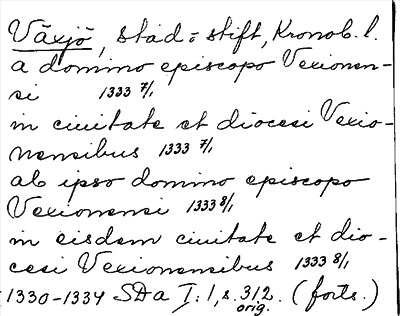 Växjö, stad o stift, Kronob. l.
a domino episcopo Vexionen-
si 1333 7/1
in ciuitate et diocesi Vexio-
nensibus 1333 7/1
ab ipso domino episcopo
Vexionensi 1333 8/1
in eisdem ciuitate et dio-
cesi Vexionensibus 1333 8/1
1330-1334 SDa I: 1, s. 312. (forts.)
orig.